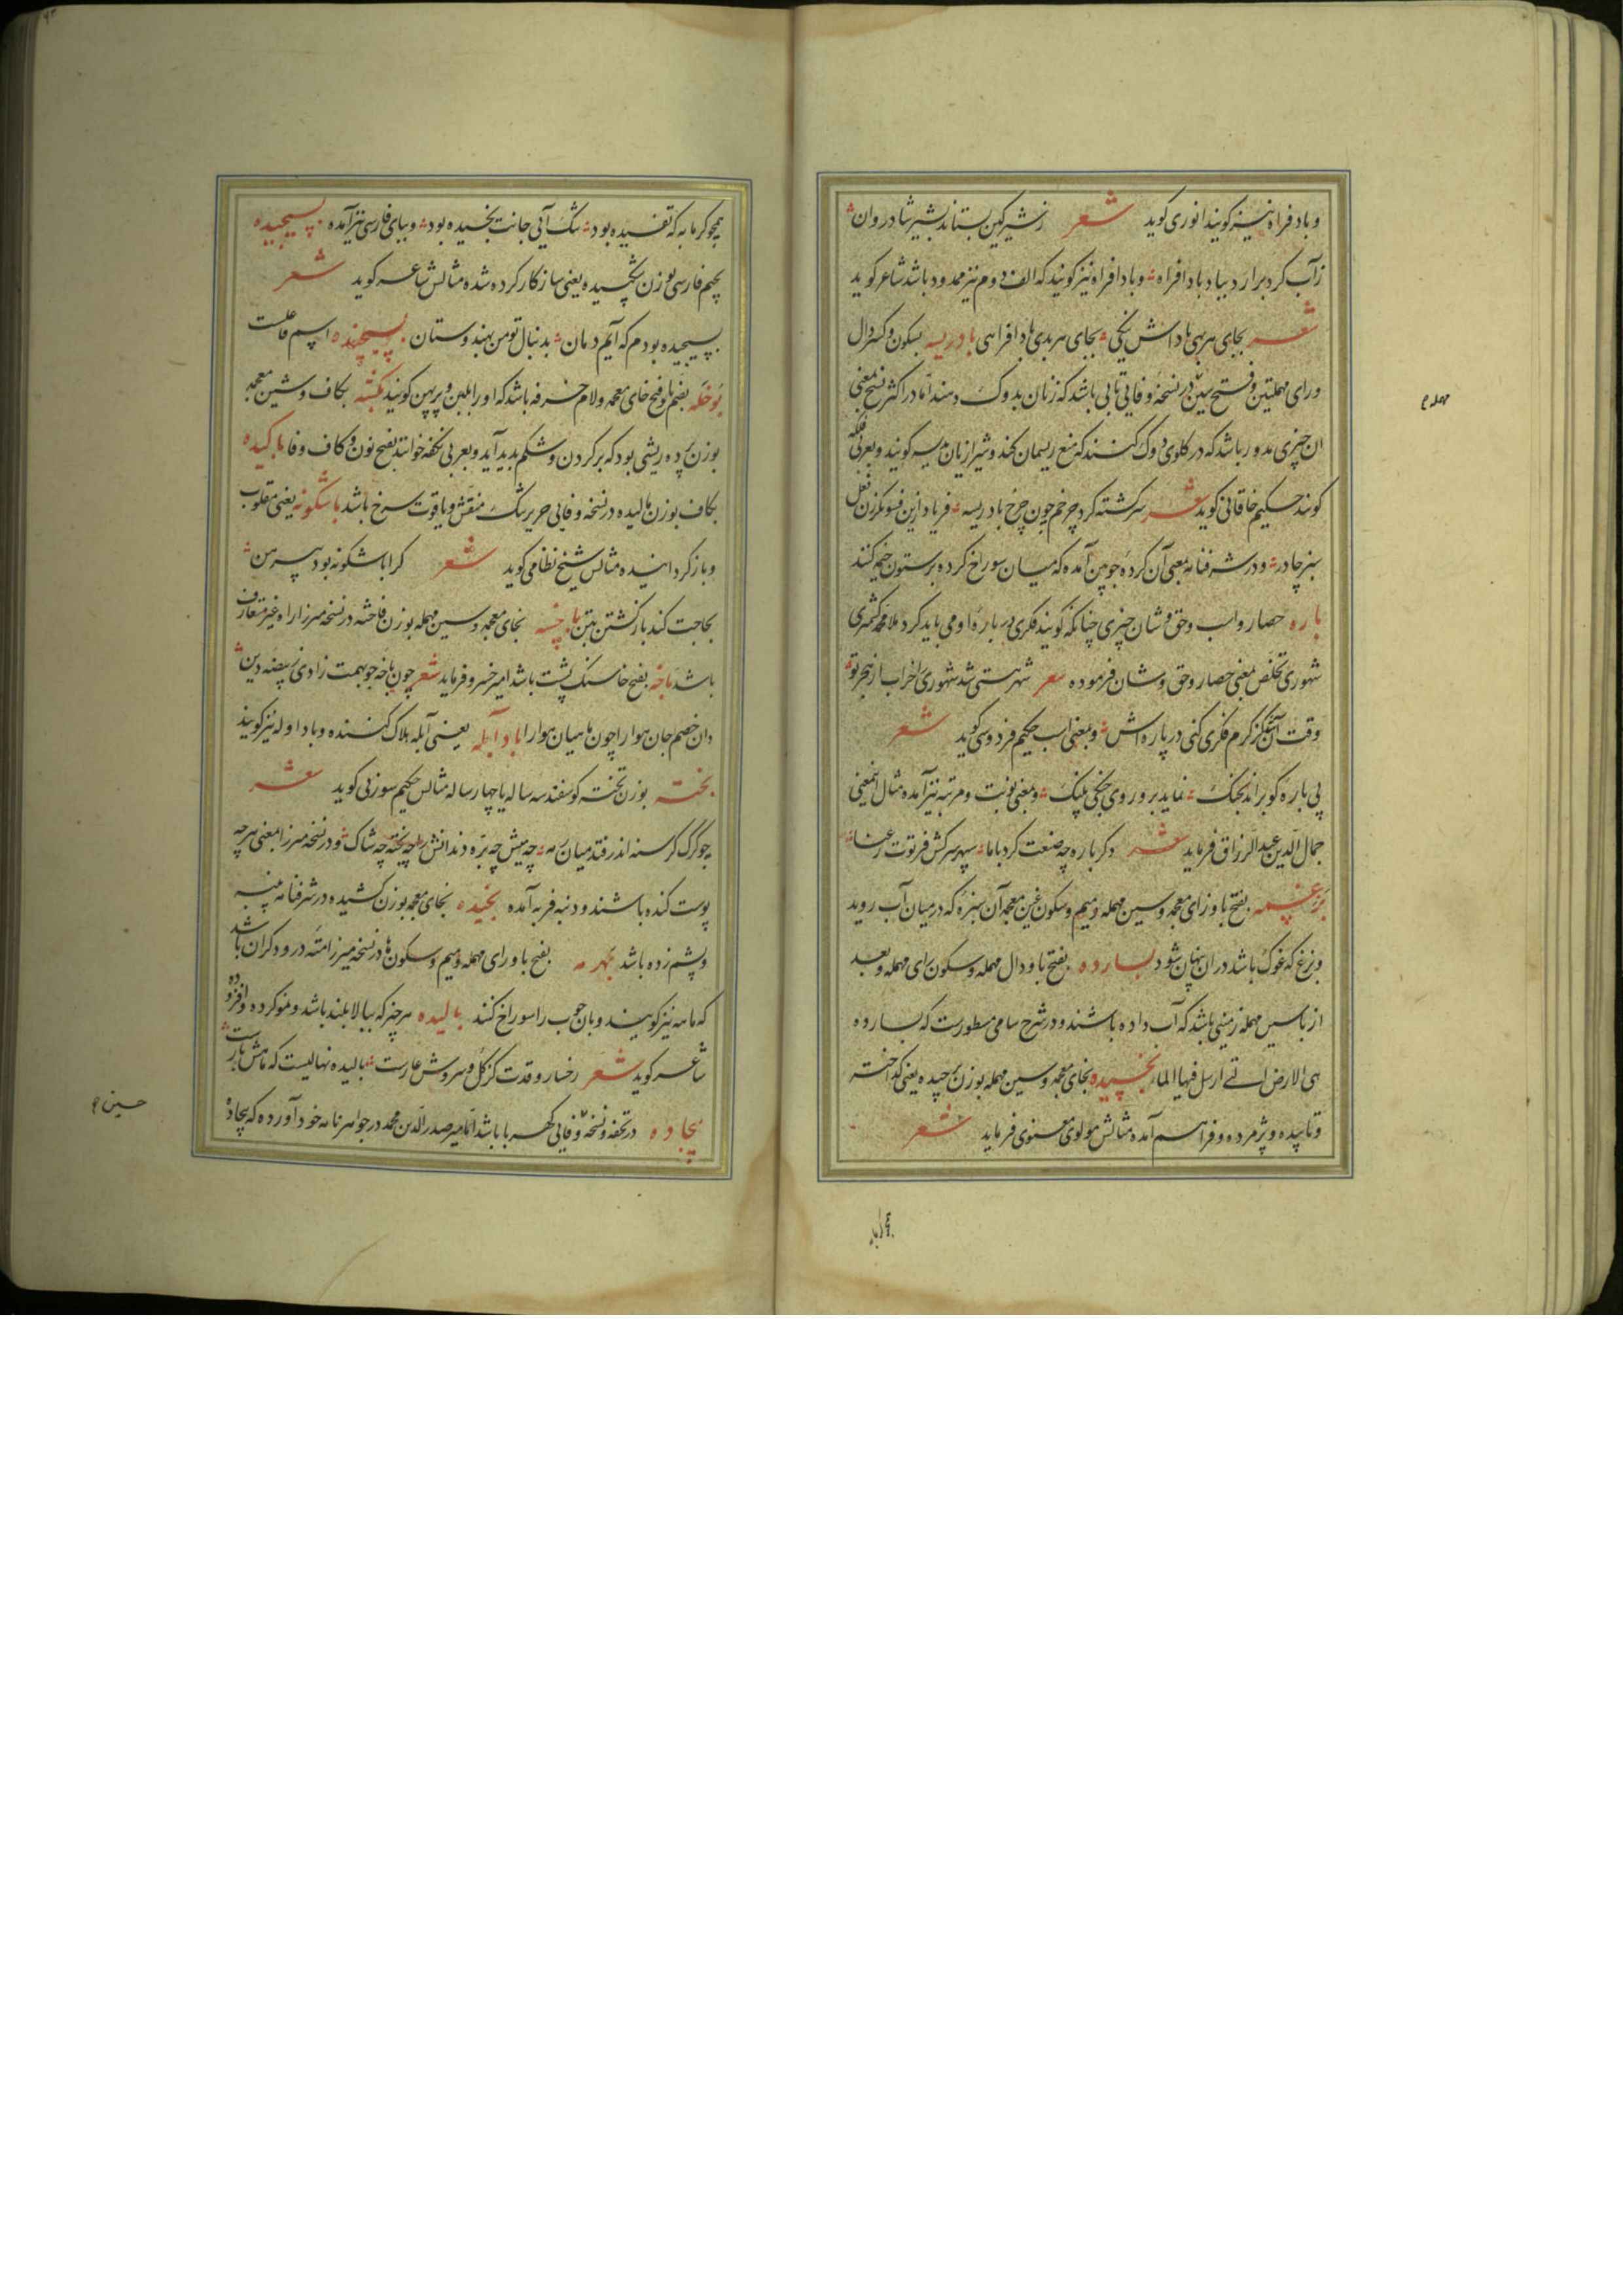 وبادفراه نیز کویند انوری کوید شعر زشیر کین بستاند بشیر شادروان
زآب کرد برارد بباد بادافراه وبادافراه نیز کویند که الف دوم نیز ممدود باشد شاعر کوید
شعر بجای هر بهی پاداش نیکی بجای هر بدی بادافراهی بادریسه بسکون وکسر دال
ورای مهملتین وفتح سین در نسخهٔ وفایی تابی باشد که زنان بدوک دهند اما در اکثر نسخ بمعنی
ان چیزی مدور باشد که در کلوی دوک کنند که منع ریسمان کند وشیرازیان کویند وبعربی فلکه
کویند حکیم خاقانی کوید شعر سرکشته کرد چرخم چون چرخ بادریسه فریاد ازین فسونکر زن فعل
سبز چادر ودر شرفنامه بمعنی آن کردهٔ چوبین آمده که میان سوراخ کرده بر ستون خیمه کنند
باره حصار واسب وحق وشان چیزی چنانکه کویند فکری در بارهٔ او می باید کرد ملا محمد کشمیری
شهوری تخلص بمعنی حصار وحق وشان فرموده شعر شهر هستی شد شهوری را خراب از هجر تو
وقت آن کز کرم فکری کنی در باره اش وبمعنی اسب حکیم فردوسی کوید شعر
پی باره کو براند بجنک نماید برو روی جنکی پلنک وبمعنی نوبت ومرتبه نیز آمده مثال اینمعنی
جمال الدین عبدالرزاق فرماید شعر دکر باره چه صنعت کرد باما سپهر سرکش فرتوت رعنا
بزغسمه بفتح با وزای معجمه وسین مهمله ومیم وسکون غین معجمه آن سبزهٔ که در میان آب روید
وبزغ که غوک باشد دران پنهان شود بسارده بفتح با ودال مهمله وسکون رای مهمله وبعد
از با سین مهمله زمینی باشد که آب داده باشند ودر شرح سامی مسطورست که بسارده
هی الارض التی ارسل فیها الماء بخسیده بخای معجمه وسین مهمله بوزن چیده یعنی کداخته
وتاپیده وپژمرده وفراهم آمده مثالش مولوی معنوی فرماید شعر
همچو کرمابه که تفسیده بود تنک آیی جانت بخسیده بود وببای فارسی نیز آمده بسیجیده
بجیم فارسی بوزن نکچیده یعنی سازکار کرده شده مثالش شاعر کوید شعر
بسیجیده بودم که آیم دمان بدنبال تو من بهندوستان بسیجنده اسم فاعلست
بوخله بضم با وفتح خای معجمه ولام خرفه باشد که اورا بلبن وپرپهن کویند بکشه بکاف وشین معجمه
بوزن پده ریشی بود که بر کردن وشکم بدید آید وبعربی نکفه خوانند بفتح نون وکاف وفا باکیده
بکاف بوزن مالیده در نسخهٔ وفایی حریر تنک منقش ویاقوت سرخ باشد باشکونه یعنی مقلوب
وبازکردانیده مثالش شیخ نظامی کوید شعر کرا باشکونه بود پیرهن
بحاجت کند بازکشتن بتن باخسه بخای معجمه وسین مهمله بوزن فاخته در نسخهٔ میرزا راه غیر متعارف
باشد باخه بفتح خا سنک پشت باشد امیر خسرو فرماید شعر چون باخه چو بهمت زادی ز بیضه دین
دان خصم جان هوارا چون ماهیان هوارا باد آبله یعنی آبله هلاک کننده وباد اوله نیز کویند
بخته بوزن تخته کوسفند سه ساله یا چهارساله مثالش حکیم سوزنی کوید شعر
چو کرک کرسنه اندر فتد میان رمه چه میش چه بره دندانش را چه بخته چه شاک ودر نسخهٔ میرزا بمعنی هرچه
پوست کنده باشند ودنبه فربه آمده بخیده بخای معجمه بوزن کشیده در شرفنامه پنبه
وپشم زده باشد بهرمه بفتح با ورای مهمله ومیم وسکون ها در نسخهٔ میرزا مته درودکران باشد
که ماهه نیز کویند وبان چوب را سوراخ کنند بالیده هر چیز که ببالا بلند باشد ونمو کرده وافزوده
شاعر کوید شعر رخسار وقدت کز کل وسروش عارست بالیده نهالیست که ماهش بارست
بیجاده در تحفه ونسخهٔ وفایی کهربا باشد اما میر صدر الدین محمد در جواهرنامه خود آورده که بیجاده